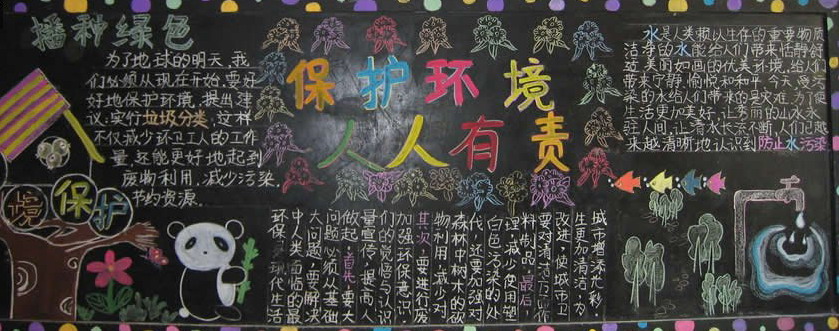 播种绿色
为了地球的明天，我
们必须从现在开始，要好
好地保护环境，提出建
议：实行垃圾分类，这样
不仅减少环卫工人的工作
量，还能更好地起到
废物利用，减少污染，
节约资源。
保护环境
人人有责
水是人类赖以生存的重要物质
洁净的水能给人们带来恬静舒
适，美的如画的优美环境，给人们
带来宁静、愉悦和和平。今天，受污
染的水给人们带来的是灾难，为了使
生活更加美好，让秀丽的山水永
驻人间，让清水长流不断，人们已越
来越清晰地认识到防止水污染
境保护
环保是现代生活
中人类面临的最
大问题，要解决
问题必须从基础
做起。首先，要大
量宣传，提高人
们的觉悟与认识
加强环保意识
其次，要进行废
物利用，减少对
森林中树木的砍
伐，还要加强对
白色污染的处
理，减少使用塑
料制品。最后，
要对清洁工作
改进，使城市卫
生更加清洁，为
城市增添光彩。